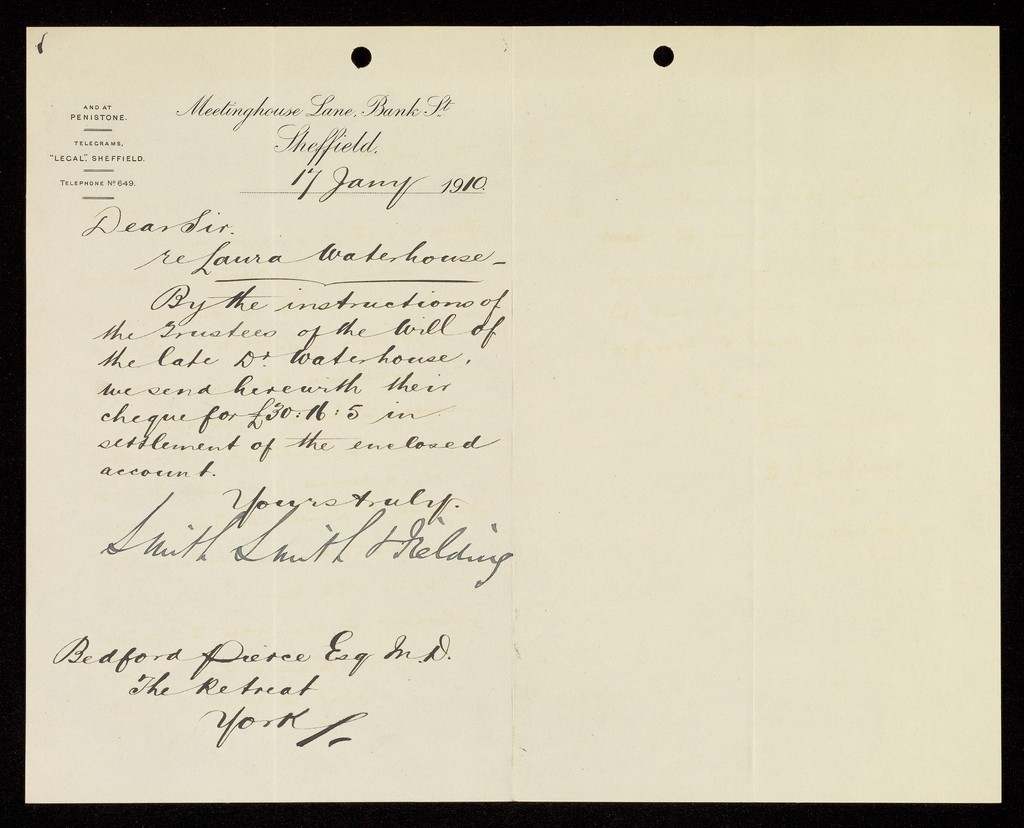 AND AT
PENISTONE.
TELEGRAMS,
"LEGAL", SHEFFIELD.
TELEPHONE No 649.
Meetinghouse Lane, Bank St.
Sheffield.
17 Jany 1910
Dear Sir.
re Laura Waterhouse -
By the instructions of
the Trustees of the Will of
the late Dr. Waterhouse,
we send herewith their
cheque for £30:16:5 in
settlement of the enclosed
account.
Yours truly.
Smith Smith & Fielding
Bedford Pierce Esq M.D.
The Retreat
York